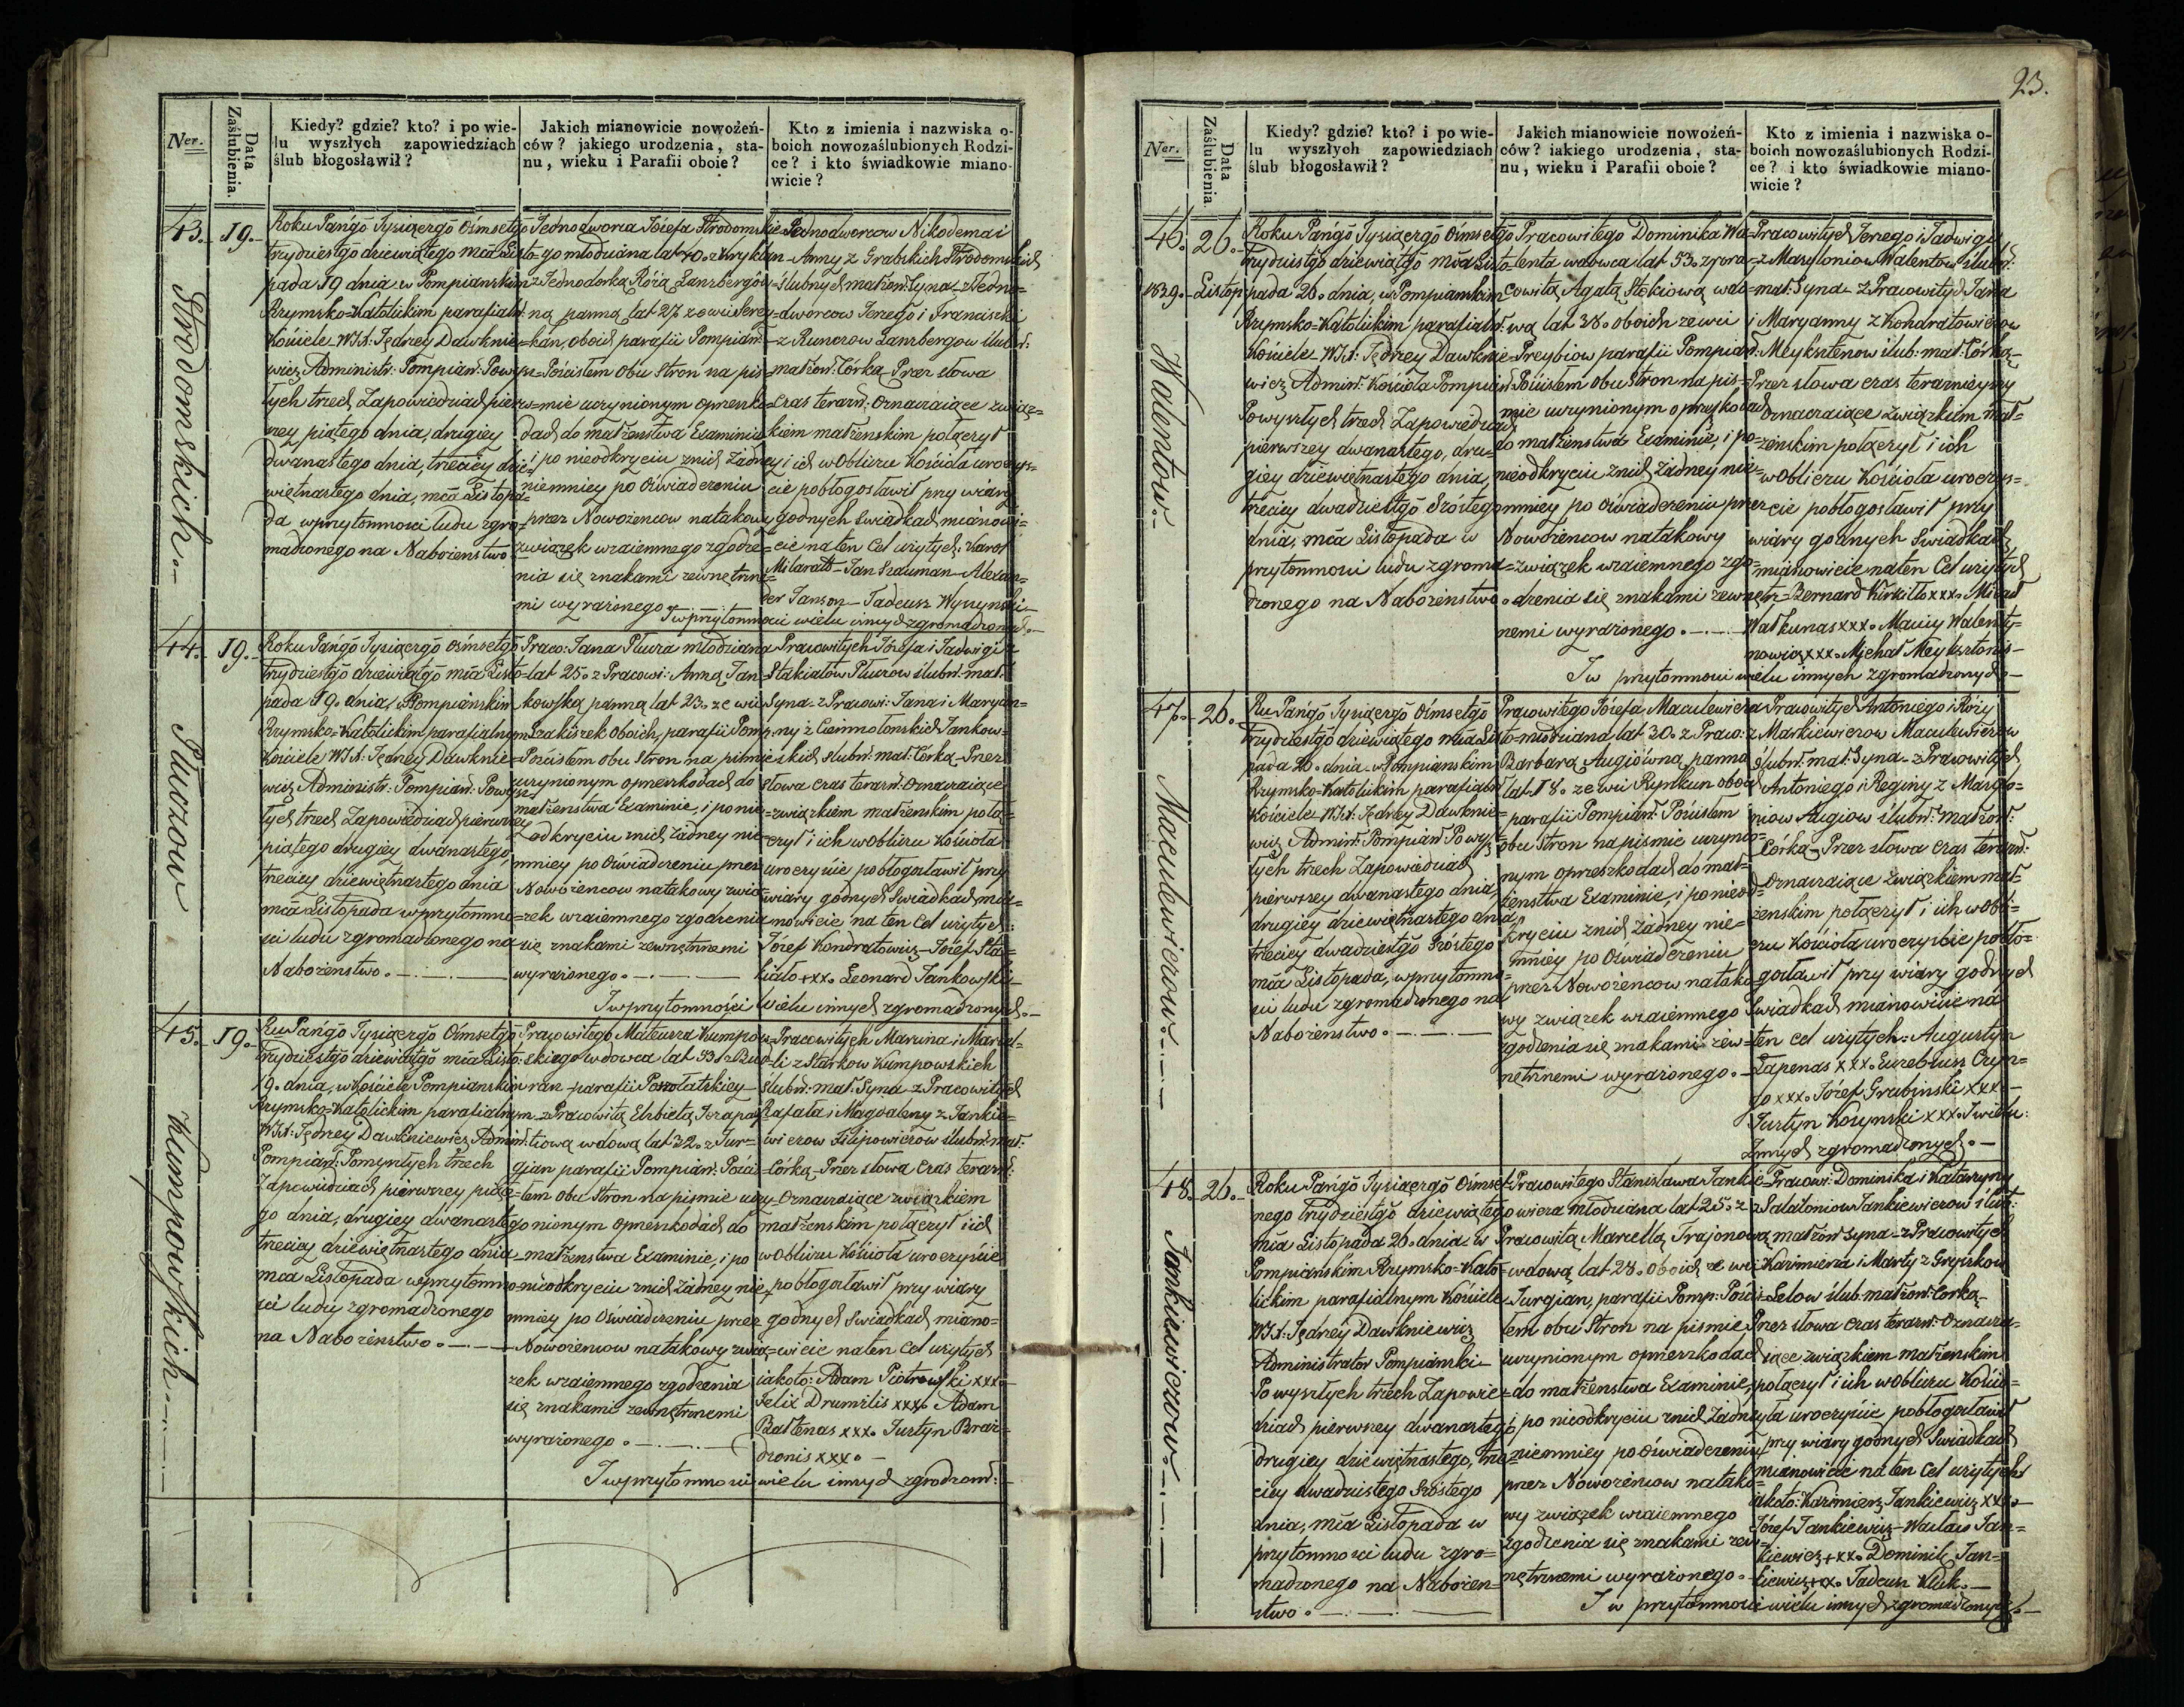 Ner.
Data Zaślubienia.
Kiedy? gdzie? kto? i po wie-
lu wyszłych zapowiedziach
ślub błogosławił?
Jakich mianowicie nowożeń-
ców? jakiego urodzenia, sta-
nu, wieku i Parafii oboie?
Kto z imienia i nazwiska o-
boich nowozaślubionych Rodzi-
ce? i kto świadkowie miano-
wicie?
43.
19.
Strodomskich
Roku Pańgo Tysiącgo Ośmsetgo
trzydziestgo dziewiątego mca Listo-
pada 19 dnia w Pompianskim
Rzymsko-Katolickim parafialn:
Kościele WJX: Jędrzey Dawknie-
wicz Administr: Pompiań: Po wysz-
łych trzech Zapowiedziach pierw-
szey piątego dnia, drugiey
dwanastego dnia, trzeciey dzie-
więtnastego dnia, mca Listopa-
da w przytomności ludu zgro-
madzonego na Nabożenstwo
Jednodworca Józefa Strodomskie-
go młodziana lat 40. z Krykl
z Jednodorką Różą Lanzbergów-
ną panną lat 27 z
oboich parafii Pompiań:
Po ścisłem obu Stron na piś-
mie uczynionym o przeszko-
dach do małżenstwa Examinie
i po nieodkryciu z nich żadney
niemniey po Oświadczeniu
przez Nowożencow na takowy
związek wzaiemnego zgodze-
nia się znakami zewnętrzne-
mi wyrażonego
Jednodworcow Nikodema i
Anny z Grabskich Strodomskich
ślubnych małżon: Syna z Jedno-
dworcow Jerzego i Franciszki
z Runcrow Lanzbergow ślubn:
małżon: Córką Przez słowa
czas terazn: Oznaczaiące związ-
kiem małżenskim połączył
i ich w Obliczu Kościoła uroczyś-
cie pobłogosławił przy wiary
godnych Swiadkach mianowi-
cie na ten Cel użytych: Karol
Milarad Jan Szauman Alexan-
der Janson Tadeusz Wyszynski
I w przytomności wielu innych zgromadzonych.
44.
19.
Płuczow
Roku Pańgo Tysiącgo ośmsetgo
trzydziestgo dziewiątgo mca Listo-
pada 19. dnia, w Pompianskim
Rzymsko-Katolickim parafialnym
Kościele WJX: Jędrzey Dawknie-
wicz Administr: Pompiań: Po wysz-
łych trzech Zapowiedziach pierwszey
piątego drugiey dwanastego,
trzeciey dziewiętnastego dnia
mca Listopada w przytomno-
sci ludu zgromadzonego na
Nabożenstwo.
Praco: Jana Płucza młodziana
lat 25. z Pracowi: Anną Jan-
kowską panną lat 23. ze wsi
Szakiszek Oboich, parafii Pomp.
Po ścisłem obu Stron na piśmie
uczynionym o przeszkodach do
małżenstwa Examinie, i po nie-
odkryciu z nich żadney nie-
mniey po Oświadczeniu przez
Nowożencow na takowy zwią-
zek wzaiemnego zgodzenia
się znakami zewnętrznemi
wyrażonego.
Pracowitych Józefa i Jadwigi z
Stakiałow Płuczow ślubn: mał:
Syna z Pracowi: Jana i Maryan-
ny z Ciemnołonskich Jankow-
skich ślubn: mał: Córką Przez
słowa czas terazn: Oznaczaiące
związkiem małżenskim połą-
czył i ich w obliczu Kościoła
uroczyście pobłogosławił przy
wiary godnych Swiadkach mia-
nowicie na ten Cel użytych:
Józef Kondratowicz Józef Sta-
kiało xxx. Leonard Jankowski
I w przytomności wielu innych zgromadzonych.
45.
19.
Kumpowskich
Ru Pańgo Tysiącgo Ośmsetgo
trzydziestgo dziewiątgo mca Listo:
19. dnia, w Kościele Pompianskim
Rzymsko-Katolickim parafialnym
WJX: Jędrzey Dawkniewicz Admin:
Pompiań: Po wyszłych trzech
Zapowiedziach pierwszey piąte-
go dnia, drugiey dwanastego
trzeciey dziewiętnastego dnia
mca Listopada w przytomno-
sci ludu zgromadzonego
na Nabożenstwo.
Pracowitego Mateusza Kumpow-
skiego wdowca lat 33 z Bud-
ran parafii Poszołatskiey
z Pracowitą Elżbietą Szrapay-
tiową wdową lat 32. z Jur-
gian parafii Pompiań: Po ścis-
łem obu Stron na piśmie uczy-
nionym o przeszkodach do
małżenstwa Examinie, i po
nieodkryciu z nich żadney nie-
mniey po Oświadczeniu przez
Nowożencow na takowy zwią-
zek wzaiemnego zgodzenia
się znakami zewnętrznemi
wyrażonego.
Pracowitych Marcina i Marcel-
li z Starkow Kumpowskich
ślubn: mał: Syna z Pracowitych
Rafała i Magdaleny z Jankie-
wiczow Filipowiczow ślubn: mał:
Córką Przez słowa czas terazn:
Oznaczaiące związkiem
małżenskim połączył i ich
w Obliczu Kościoła uroczyście
pobłogosławił przy wiary
godnych Swiadkach miano-
wicie na ten Cel użytych
iakoto: Adam Piotrowski xxx.
Felix Drumstis xxx. Adam
Bałtenas xxx. Justyn Braz-
dzonis xxx.
I w przytomności wielu innych zgrodzon:
23.
Ner.
Data Zaślubienia.
Kiedy? gdzie? kto? i po wie-
lu wyszłych zapowiedziach
ślub błogosławił?
Jakich mianowicie nowożeń-
ców? iakiego urodzenia, sta-
nu, wieku i Parafii oboie?
Kto z imienia i nazwiska o-
boich nowozaślubionych Rodzi-
ce? i kto świadkowie miano-
wicie?
46.
26.
1839. Listop
Walentow.
Roku Pańgo Tysiącgo Ośmsetgo
trzydziestgo dziewiątgo mca Listo-
pada 26. dnia, w Pompianskim
Rzymsko-Katolickim parafialn:
Kościele WJX: Jędrzey Dawknie-
wicz Admin: Kościoła Pompiań:
Po wyszłych trzech Zapowiedziach
pierwszey dwanastego, dru-
giey dziewiętnastego dnia,
trzeciey dwadziestgo szóstego
dnia, mca Listopada w
przytomnosci ludu zgroma-
dzonego na Nabożenstwo.
Pracowitego Dominika Wa-
lenta wdowca lat 53. z Pra-
cowitą Agatą Stokiową wdo-
wą lat 38. oboich ze wsi
Preybiow parafii Pompiań:
Po ścisłem obu Stron na piś-
mie uczynionym o przyskodach
do małżenstwa Examinie, i po
nieodkryciu z nich żadney nie-
mniey po Oświadczeniu przez
Nowożencow na takowy
związek wzaiemnego zgo-
dzenia się znakami zewnętrz-
nemi wyrażonego.
Pracowitych Jerzego i Jadwigi
z Masytoniow Walentow ślubn:
mał: Syna z Pracowitych Jana
i Maryanny z Kondratowiczow
Meyksztenow ślub: mał: Córką
Przez słowa czas teraznieyszy
Oznaczaiące związkiem mał-
żenskim połączył i ich
w Obliczu Kościoła uroczys-
cie pobłogosławił przy
wiary godnych Swiadkach
mianowicie na ten Cel użytych
Bernard Kirkiłło xxx. Michał
Wałkunas xxx. Maciey Walenty-
nowicz xxx. Michał Meyksztonis
I w przytomnosci wielu innych zgromadzonych.
47.
26.
Maculewiczow.
Ru Pańgo Tysiącgo Ośmsetgo
trzydziestgo dziewiątego mca Lis-
pada 26. dnia w Pompianskim
Rzymsko-Katolickim parafialn:
Kościele WJX: Jędrzey Dawknie-
wicz Admin: Pompiań: Po wysz-
łych trzech Zapowiedziach
pierwszey dwanastego dnia,
drugiey dziewiętnastego dnia,
trzeciey dwadziestgo Szóstego
mca Listopada, w przytomno-
sci ludu zgromadzonego na
Nabożenstwo.
Pracowitego Józefa Maculewicza
młodziana lat 30. z Praco:
Barbarą Augiówną panną
lat 18. ze wsi Rynkun oboch
parafii Pompiań: Po ścisłem
obu Stron na piśmie uczynio-
nym o przeszkodach do mał-
żenstwa Examinie, i po nieod-
kryciu z nich żadney nie-
mniey po Oświadczeniu
przez Nowożencow na tako-
wy związek wzaiemnego
zgodzenia się znakami zew-
nętrznemi wyrażonego.
Pracowitych Antoniego i Róży
z Markiewiczow Maculewiczow
ślubn: mał: Syna z Pracowitych
Antoniego i Reginy z Margo-
niow Augiow ślubn: małżon:
Córką Przez słowa czas terazn:
Oznaczaiące związkiem mał-
żenskim połączył i ich w Obli-
czu Kościoła uroczyście pobło-
gosławił przy wiary godnych
Swiadkach mianowicie na
ten cel użytych: Augustyn
Łapenas xxx. Euzebiusz Czyn-
go xxx. Józef Grubinski xxx.
Justyn Koszynski xxx. I wielu
Innych zgromadzonych.
48.
26.
Jankiewiczow.
Roku Pańgo Tysiącgo Ośmset-
nego trzydziestgo dziewiątego
mca Listopada 26. dnia w
Pompianskim Rzymsko-Kato-
lickim parafialnym Kościele
WJX: Jędrzey Dawkniewicz
Administrator Pompianski
Po wyszłych trzech Zapowie-
dziach pierwszey dwanastego
drugiey dziewiętnastego, trze-
ciey dwadziestego Szóstego
dnia, mca Listopada w
przytomnosci ludu zgro-
madzonego na Nabożen-
stwo.
Pracowitego Stanisława Jankie-
wicza młodziana lat 25. z
Pracowitą Marcellą Trajonową
wdową lat 28. oboich ze wsi
Jurgian, parafii Pomp: Po ścis-
łem obu Stron na piśmie
uczynionym o przeszkodach
do małżenstwa Examinie,
i po nieodkryciu z nich żadney
niemniey po Oświadczeniu
przez Nowożencow na tako-
wy związek wzaiemnego
zgodzenia się znakami zew-
nętrznemi wyrażonego.
Pracowi: Dominika i Katarzyny
z Sałatoniow Jankiewiczow ślub:
małżon: Syna z Pracowitych
Kazimierza i Marty z Gryszkow
Lelow ślub: małżon: Córką
Przez słowa czas terazn: Oznacza-
iące związkiem małżenskim
połączył i ich w obliczu Kościo-
ła uroczyście pobłogosławił
przy wiary godnych Swiadkach
mianowicie na ten Cel użytych
iakoto: Kazimierz Jankiewicz xxx.
Józef Jankiewicz Wacław Jan-
kiewicz xxx. Dominik Jan-
kiewicz xxx. Tadeusz Kluk.
I w przytomnosci wielu innych zgromadzonych.